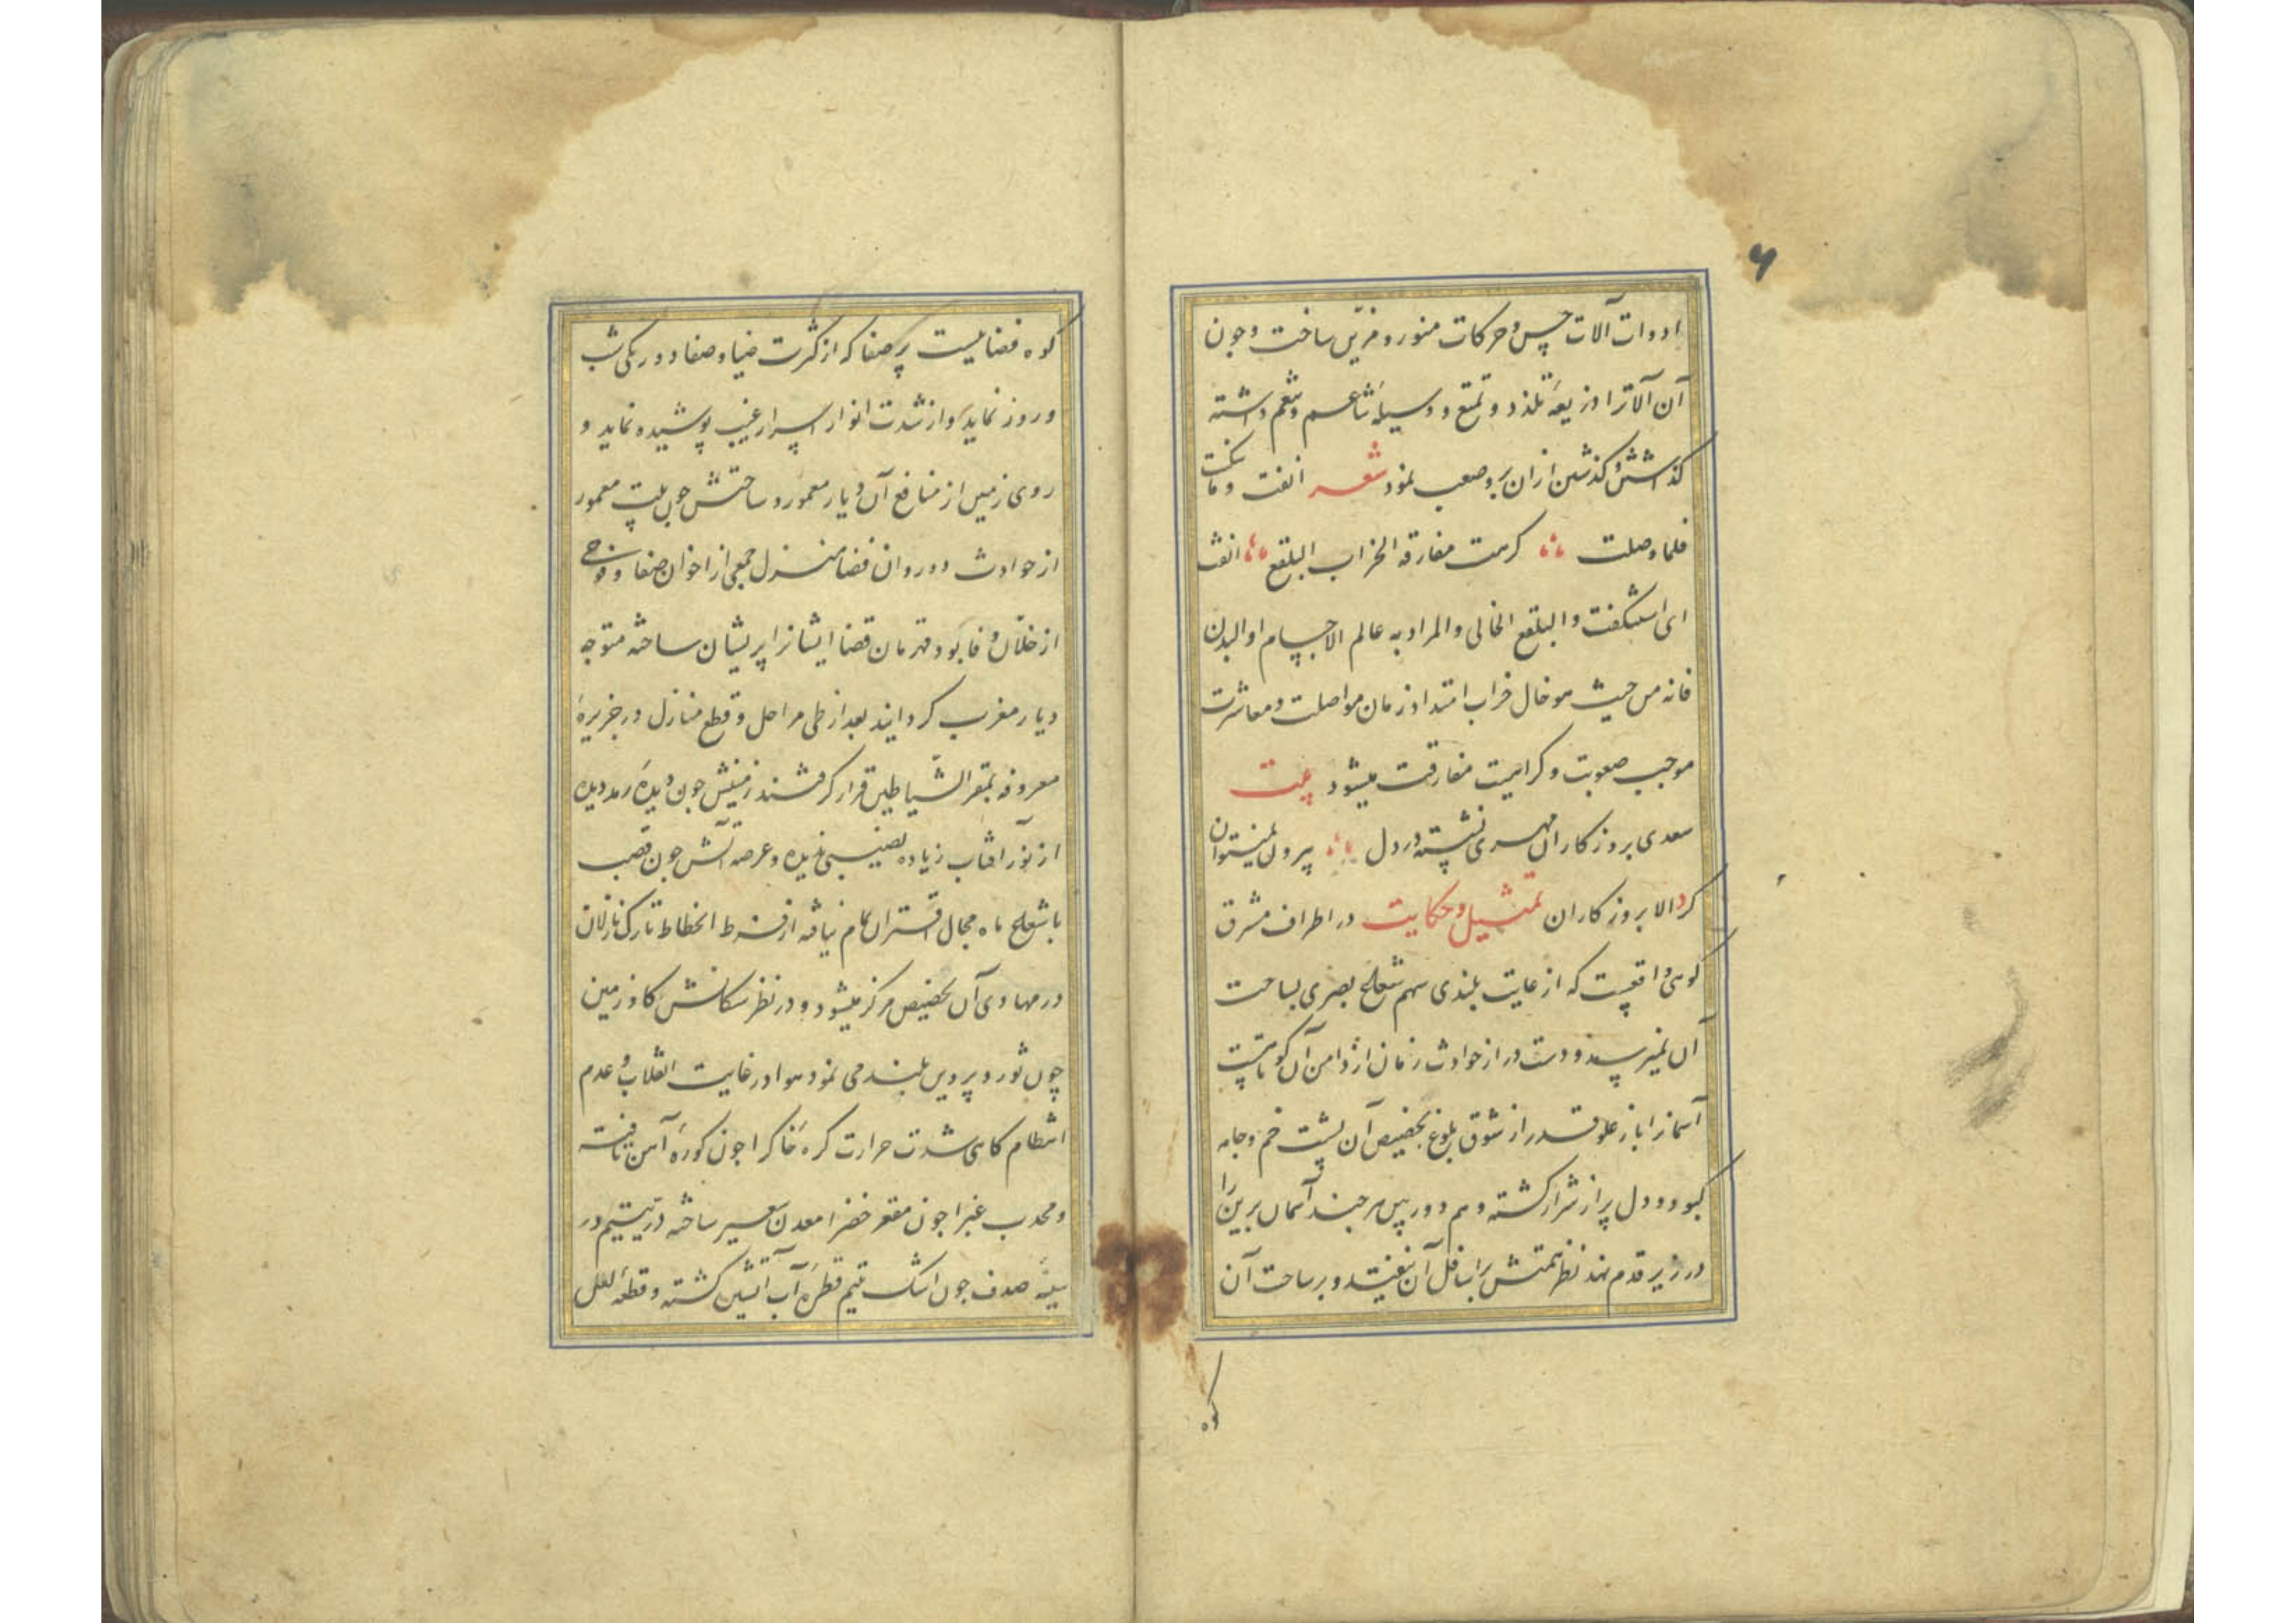 ۶
ادوات آلات حس و حرکات منور و مزین ساخت و چون
آن آلاترا ذریعهٔ تلذذ و تمتع و وسیلهٔ تناعم و تنعم داشته
گذاشتن و گذشتن ازان برو صعب نمود شعر انفت و ما سکنت
فلما وصلت کرهت مفارقه الخراب البلقع انفت
ای استنکفت و البلقع الخالی والمراد به عالم الاجسام او البدن
فانه من حیث هو خال خراب امتداد زمان مواصلت و معاشرت
موجب صعوبت و کراهیت مفارقت میشود بیت
سعدی بروزکاران مهری نشسته در دل بیرون نمیتوان
کرد الا بروزکاران تمثیل و حکایت در اطراف مشرق
کوهی واقعست که از غایت بلندی سهم شعاع بصری بساحت
آن نمیرسد و دست دراز حوادث زمان از دامن آن کوتاهست
آسمانرا باز علو قدر از شوق بلوغ بحضیض آن پشت خم و جامه
کبود و دل پر از شرار کشته وهم دوربین هرچند آسمان برین را
در زیر قدم نهد نظر همتش باسافل آن نیفتد و بر ساحت آن
کوه
کوه فضائیست پرصفا که از کثرت ضیا و صفا دورنکی شب
و روز ننماید و از شدت انوار اسرار غیب پوشیده نماید و
روی زمین از منافع آن دیار معمور و ساحتش چون بیت معمور
از حوادث دور و ان فضا منزل جمعی از اخوان صفا و فوجی
از خلان وفا بود قهرمان قضا ایشانرا پریشان ساخته متوجه
دیار مغرب کردانید بعد از طی مراحل و قطع منازل در جزیرهٔ
معروفه بمقر الشیاطین قرار کرفتند زمینش چون دیدهٔ رمددیده
از نور آفتاب زیاده نصیبی ندیده و عرصه اش چون قصب
با شعاع ماه مجال اقتران تمام نیافته از فرط انحطاط تارک نازلان
در مهاوی آن بحضیض مرکز میشود و در نظر سکانش کاو زمین
چون ثور و پروین بلند می نمود هوا در غایت انقلاب و عدم
انتظام کاهی شدت حرارت کرهٔ خاکرا چون کورهٔ آهن تافته
و محدب غبرا چون مقعر خضرا معدن سعیر ساخته در یتیم در
سینهٔ صدف چون اشک یتیم قطرهٔ آب آتشین کشته و قطعهٔ لعل